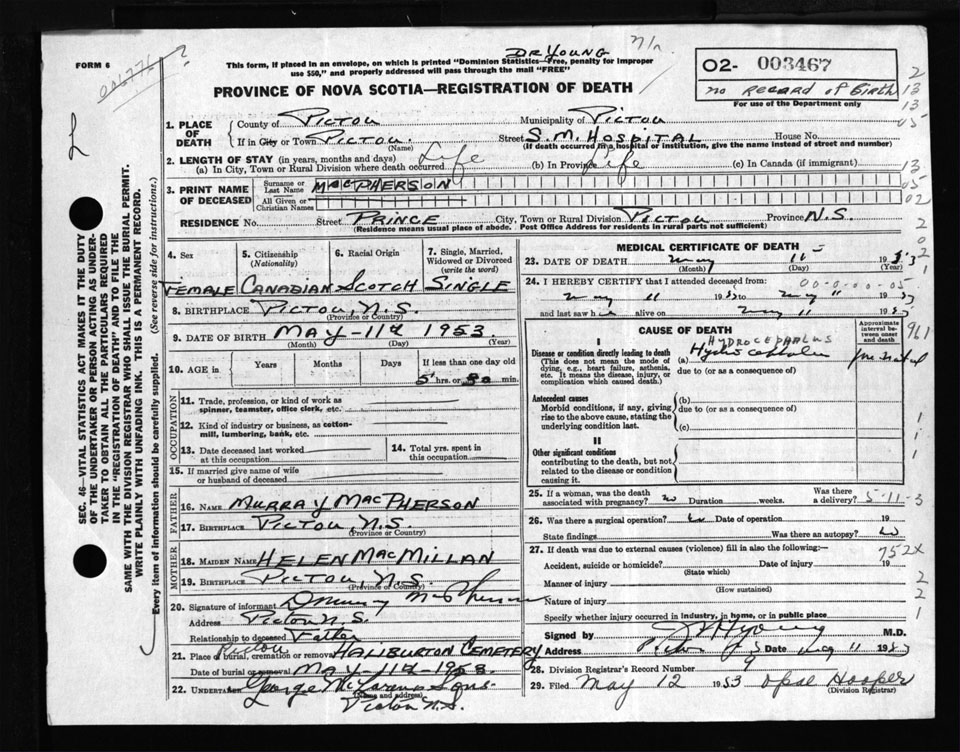 FORM 6
006776 ?
DR YOUNG
This form, if placed in an envelope, on which is printed "Dominion Statistics—Free, penalty for improper
use $50," and properly addressed will pass through the mail "FREE"
O2- 003467
no RECORD of Birth
For use of the Department only
PROVINCE OF NOVA SCOTIA—REGISTRATION OF DEATH
1. PLACE OF DEATH
County of PICTOU Municipality of PICTOU
If in City or Town PICTOU. (Name) Street S.M. HOSPITAL House No.
(If death occurred in a hospital or institution, give the name instead of street and number)
2. LENGTH OF STAY (in years, months and days)
(a) In City, Town or Rural Division where death occurred Life (b) In Province Life (c) In Canada (if immigrant)
3. PRINT NAME OF DECEASED
Surname or Last Name MACPHERSON
All Given or Christian Names
RESIDENCE No. Street PRINCE City, Town or Rural Division PICTOU Province N.S.
(Residence means usual place of abode. Post Office Address for residents in rural parts not sufficient)
4. Sex 5. Citizenship (Nationality) 6. Racial Origin 7. Single, Married, Widowed or Divorced (write the word)
FEMALE CANADIAN SCOTCH SINGLE
8. BIRTHPLACE PICTOU, N.S.
(Province or Country)
9. DATE OF BIRTH MAY-11th 1953.
(Month) (Day) (Year)
10. AGE in Years Months Days If less than one day old
5 hrs. or 30 min.
OCCUPATION
11. Trade, profession, or kind of work as
spinner, teamster, office clerk, etc.
12. Kind of industry or business, as cotton-
mill, lumbering, bank, etc.
13. Date deceased last worked
at this occupation
14. Total yrs. spent in
this occupation
15. If married give name of wife
or husband of deceased
FATHER
16. NAME MURRAY MACPHERSON
17. BIRTHPLACE PICTOU, N.S.
(Province or Country)
MOTHER
18. MAIDEN NAME HELEN MACMILLAN
19. BIRTHPLACE PICTOU, N.S.
(Province or Country)
20. Signature of informant Murray MacPherson
Address Pictou N.S.
Relationship to deceased Father
21. Place of burial, cremation or removal Pictou HALIBURTON CEMETERY
Date of burial or removal MAY-11th-1953.
22. UNDERTAKER George McLaren & Sons
(Name and address)
Pictou N.S.
MEDICAL CERTIFICATE OF DEATH
23. DATE OF DEATH May 11 1953
(Month) (Day) (Year)
24. I HEREBY CERTIFY that I attended deceased from:
00-0-00-05
May 11 1953 to May 11 1953
and last saw h alive on May 11 1953
CAUSE OF DEATH
Approximate interval between onset and death
961
I
Disease or condition directly leading to death
(This does not mean the mode of
dying, e.g., heart failure, asthenia,
etc. It means the disease, injury, or
complication which caused death.)
HYDROCEPHALUS
(a) Hydrocephalus
due to (or as a consequence of)
Antecedent causes
Morbid conditions, if any, giving
rise to the above cause, stating the
underlying condition last.
(b)
due to (or as a consequence of)
(c)
II
Other significant conditions
contributing to the death, but not
related to the disease or condition
causing it.
25. If a woman, was the death
associated with pregnancy? no Duration weeks. Was there
a delivery? 5-11-3
26. Was there a surgical operation? Date of operation 19
State findings Was there an autopsy?
27. If death was due to external causes (violence) fill in also the following:—
752X
Accident, suicide or homicide? Date of injury 19
(State which)
Manner of injury
(How sustained)
Nature of injury
Specify whether injury occurred in industry, in home, or in public place
Signed by Young M.D.
Address Pictou Date May 11 1953
28. Division Registrar's Record Number 9
29. Filed May 12 1953 Opal Hooper
(Division Registrar)
SEC. 46—VITAL STATISTICS ACT MAKES IT THE DUTY
OF THE UNDERTAKER OR PERSON ACTING AS UNDER-
TAKER TO OBTAIN ALL THE PARTICULARS REQUIRED
IN THE "REGISTRATION OF DEATH" AND TO FILE THE
SAME WITH THE DIVISION REGISTRAR WHO SHALL ISSUE THE BURIAL PERMIT.
WRITE PLAINLY WITH UNFADING INK. THIS IS A PERMANENT RECORD.
Every item of information should be carefully supplied. (See reverse side for instructions.)
2
13
13
05
13
05
02
2
0
2
1
1
1
1
2
2
1